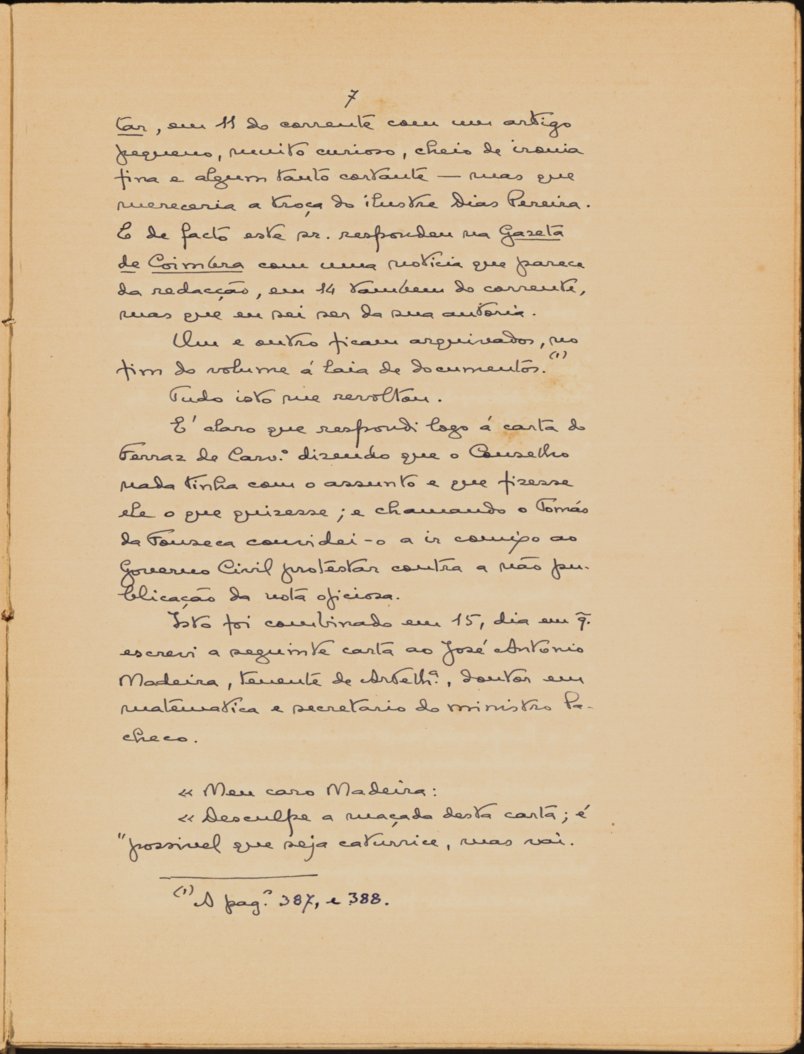 7
tar, em 11 do corrente com um artigo
pequeno, muito curioso, cheio de ironia
fina e algum tanto cortante — mas que
mereceria a troça do ilustre Dias Pereira.
E de facto este sr. respondeu na Gazeta
de Coimbra com uma noticia que parece
da redacção, em 14 tambem do corrente,
mas que eu sei ser da sua autoria.
Um e outro ficam arquivados, no
fim do volume á laia de documentos.(1)
Tudo isto me revoltou.
E' claro que respondi logo á carta do
Ferraz de Carv.º dizendo que o Conselho
nada tinha com o assunto e que fizesse
ele o que quizesse; e chamando o Tomás
da Fonseca convidei-o a ir comigo ao
Governo Civil protestar contra a não pu-
blicação da nota oficiosa.
Isto foi combinado em 15, dia em q̃.
escrevi a seguinte carta ao José Antonio
Madeira, tenente de Artelh.ª, doutor em
matematica e secretario do ministro Pa-
checo.
« Meu caro Madeira:
« Desculpe a maçada desta carta; é
"possivel que seja caturrice, mas vai.
(1) A pag.ˢ 387, e 388.